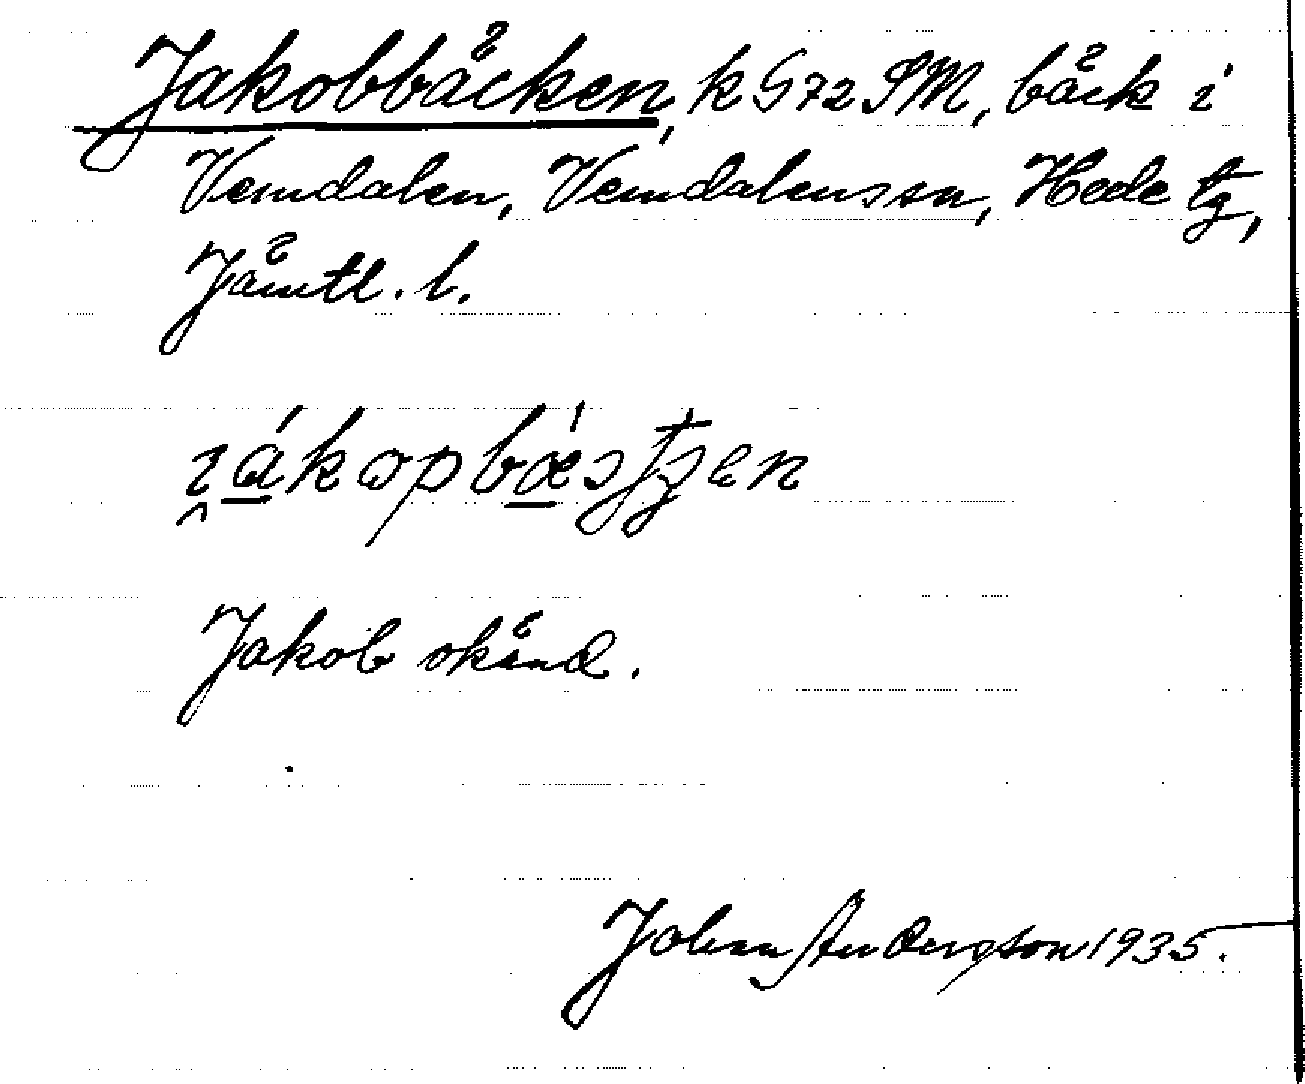 Jakobbäcken, k G72 SM, bäck i
Vemdalen, Vemdalens sn, Hede tg,
Jämtl. l.
Jakob okänd.
Johan Anderson 1935.